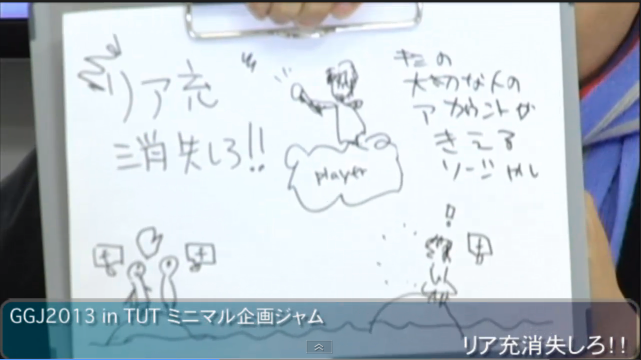 リア充
消失しろ!!
player
キミの
大切な人の
アカウントが
きえる
ソーシャル
!!
f
f
f
GGJ2013 in TUT ミニマル企画ジャム
リア充消失しろ!!